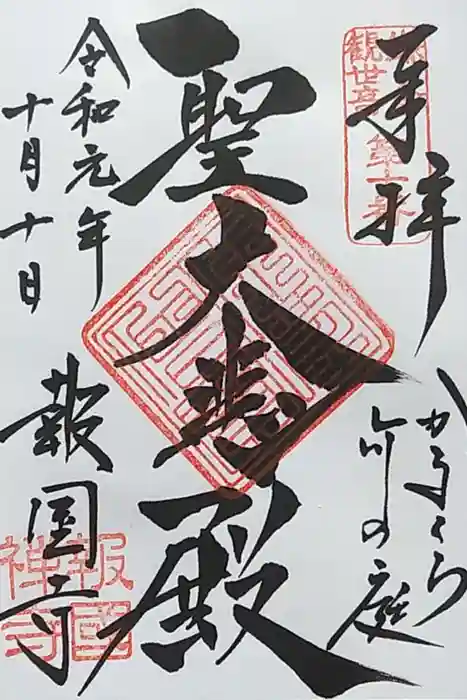 奉拝
かまくら
竹の庭
聖大悲殿
令和元年
十月十日
報国寺
観世音
第十番
報國
禅寺